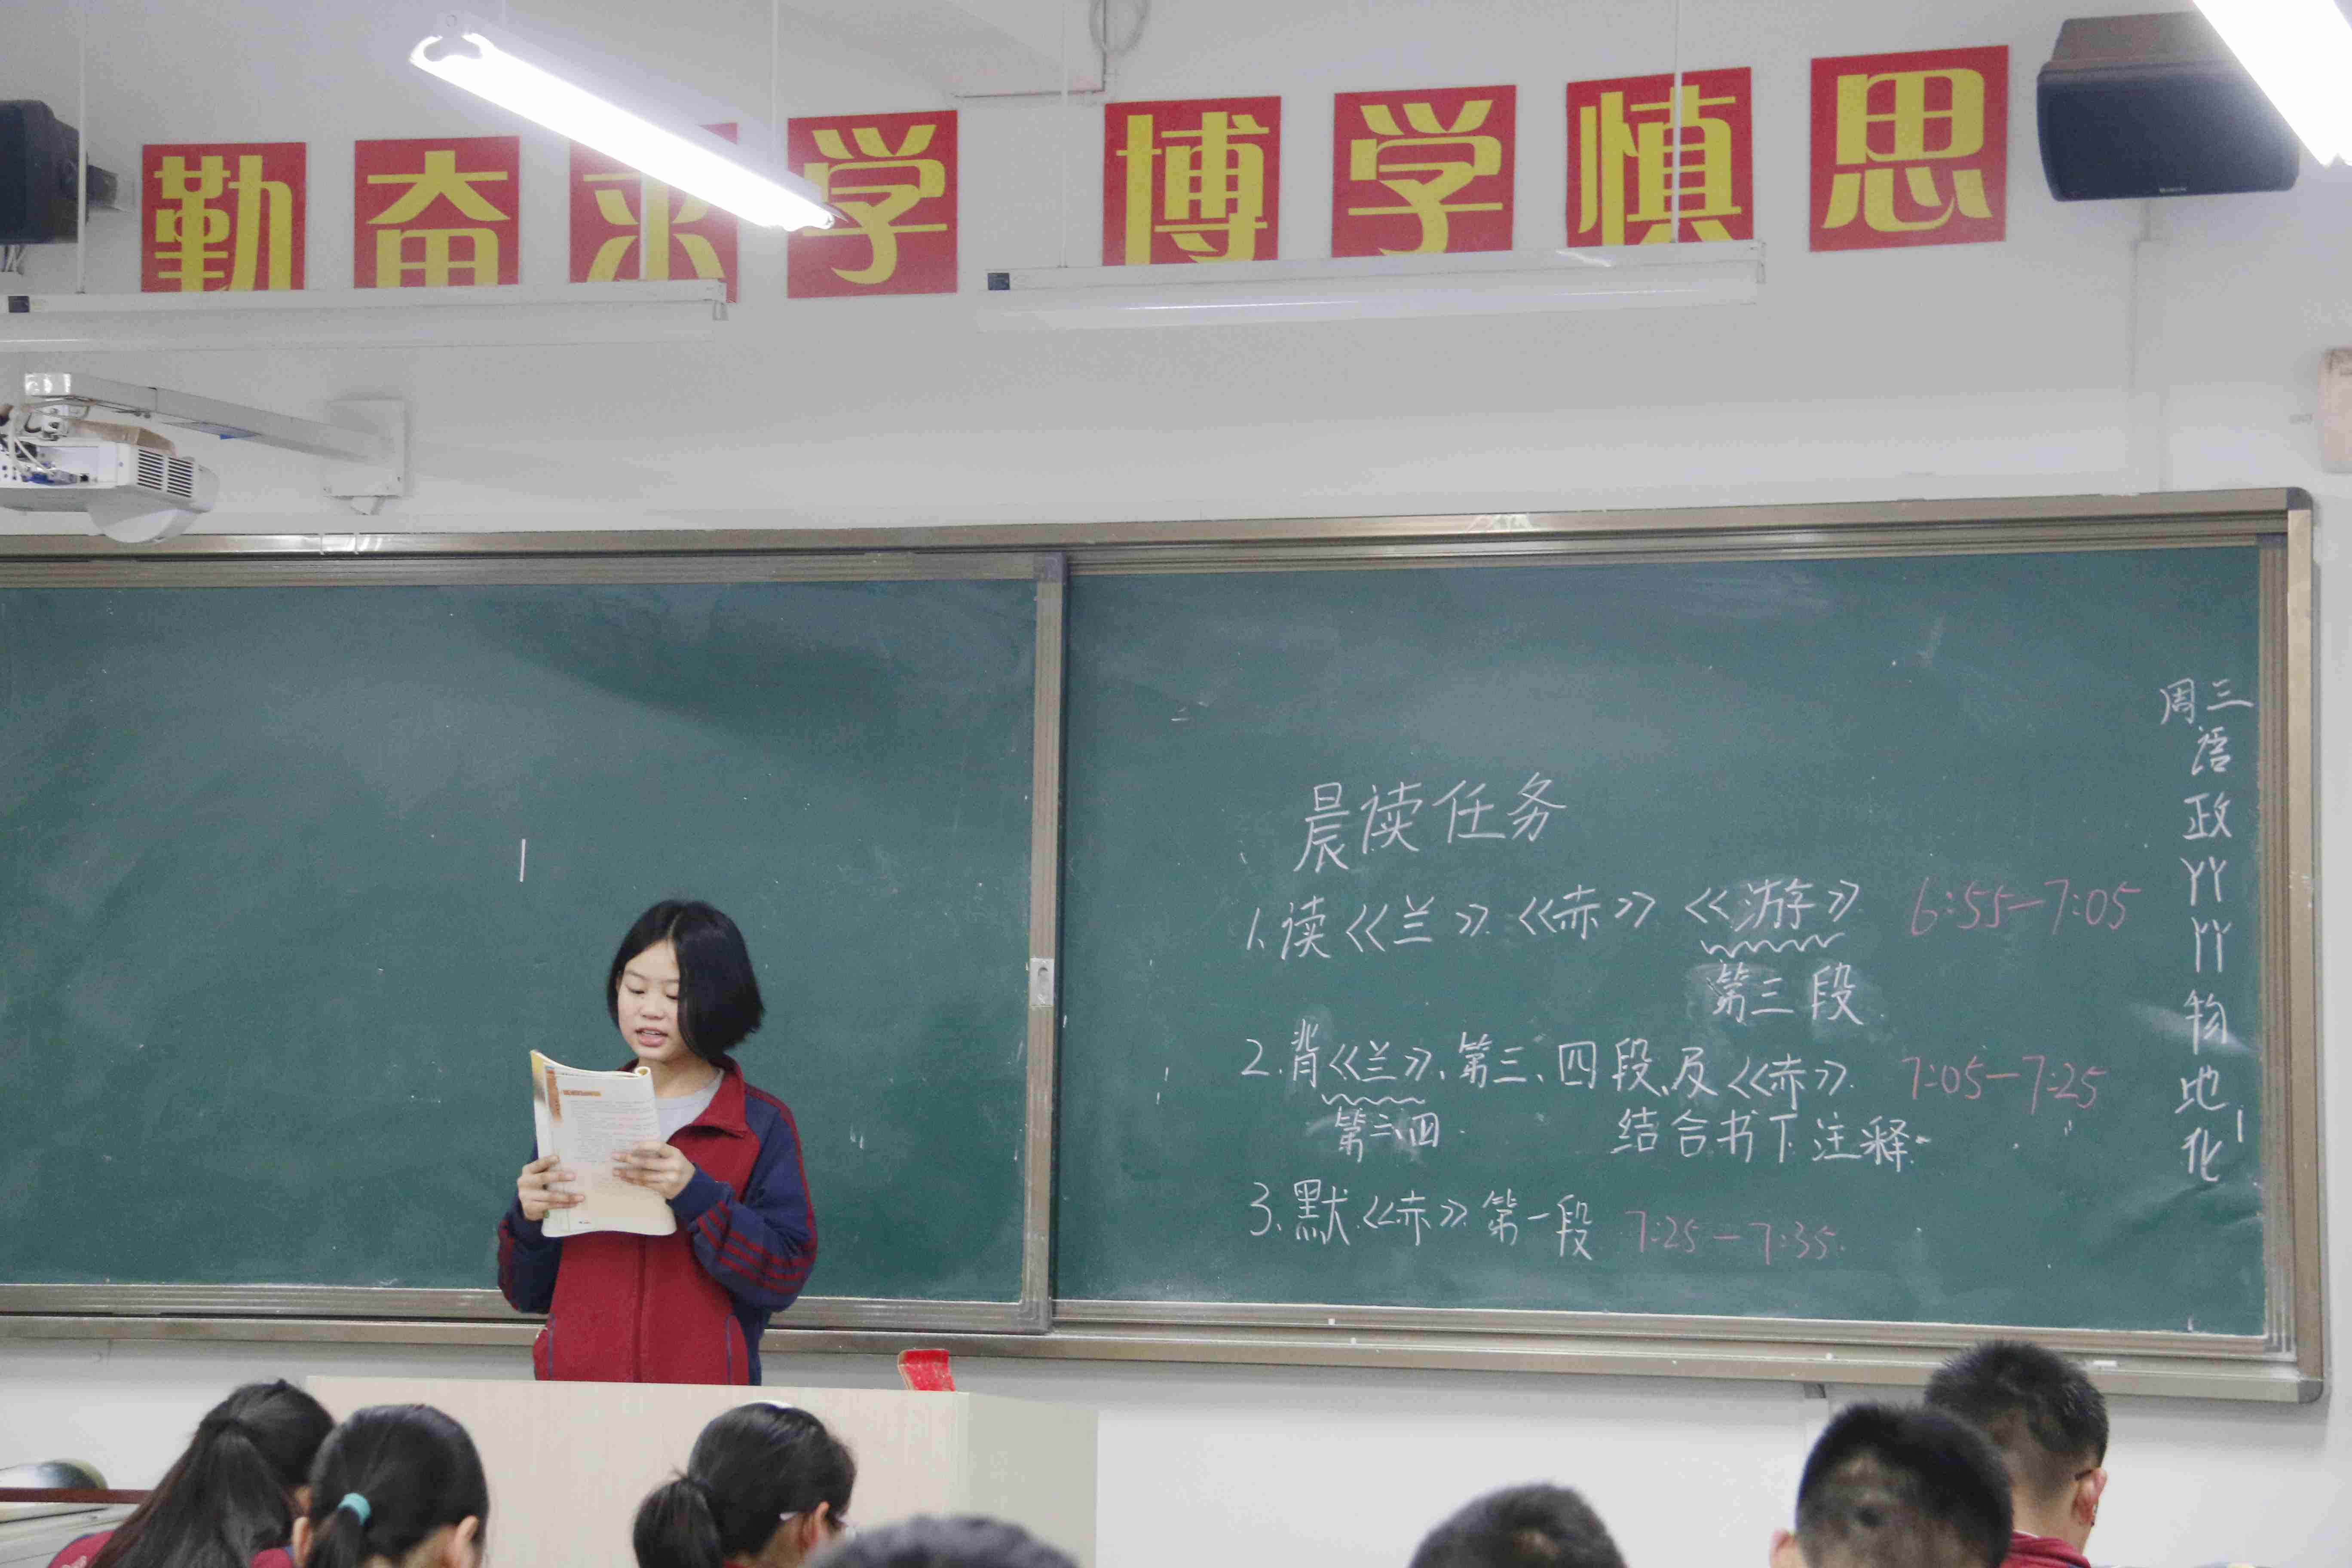 勤奋求学 博学慎思
晨读任务
1. 读《兰》《赤》《游》 6:55—7:05
第三段
2. 背《兰》、第三、四段、及《赤》. 7:05—7:25
第三四 结合书下注释
3. 默《赤》第一段 7:25—7:35.
周三
语
政
物
地
化